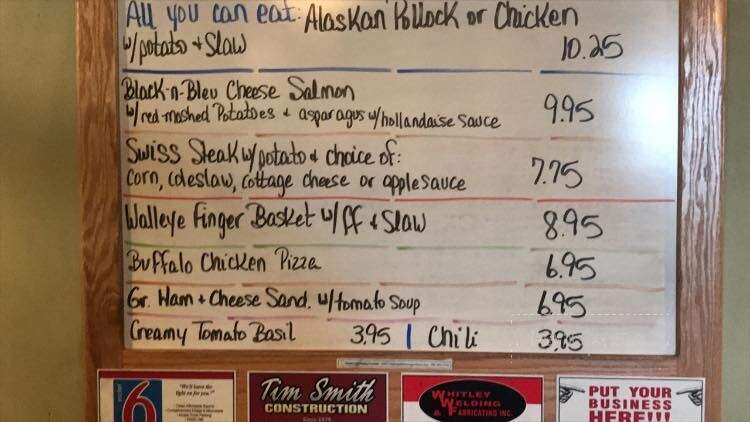 All you can eat: Alaskan Pollock or Chicken
w/potato + Slaw 10.25
Black-n-Bleu Cheese Salmon
w/red-mashed Potatoes & asparagus w/hollandaise sauce 9.95
Swiss Steak w/potato & choice of:
corn, coleslaw, cottage cheese or applesauce 7.75
Walleye Finger Basket w/ff & Slaw 8.95
Buffalo Chicken Pizza 6.95
Gr. Ham + Cheese Sand. w/tomato soup 6.95
Creamy Tomato Basil 3.95 | Chili 3.95
6
"We'll leave the
light on for you."
Tim Smith
CONSTRUCTION
WHITLEY
WELDING
& FABRICATING INC.
PUT YOUR
BUSINESS
HERE!!!